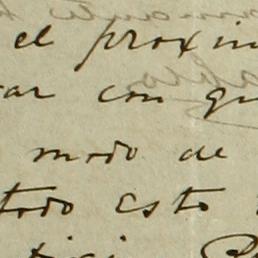 el proxim
ar con qu
modo de
todo esto